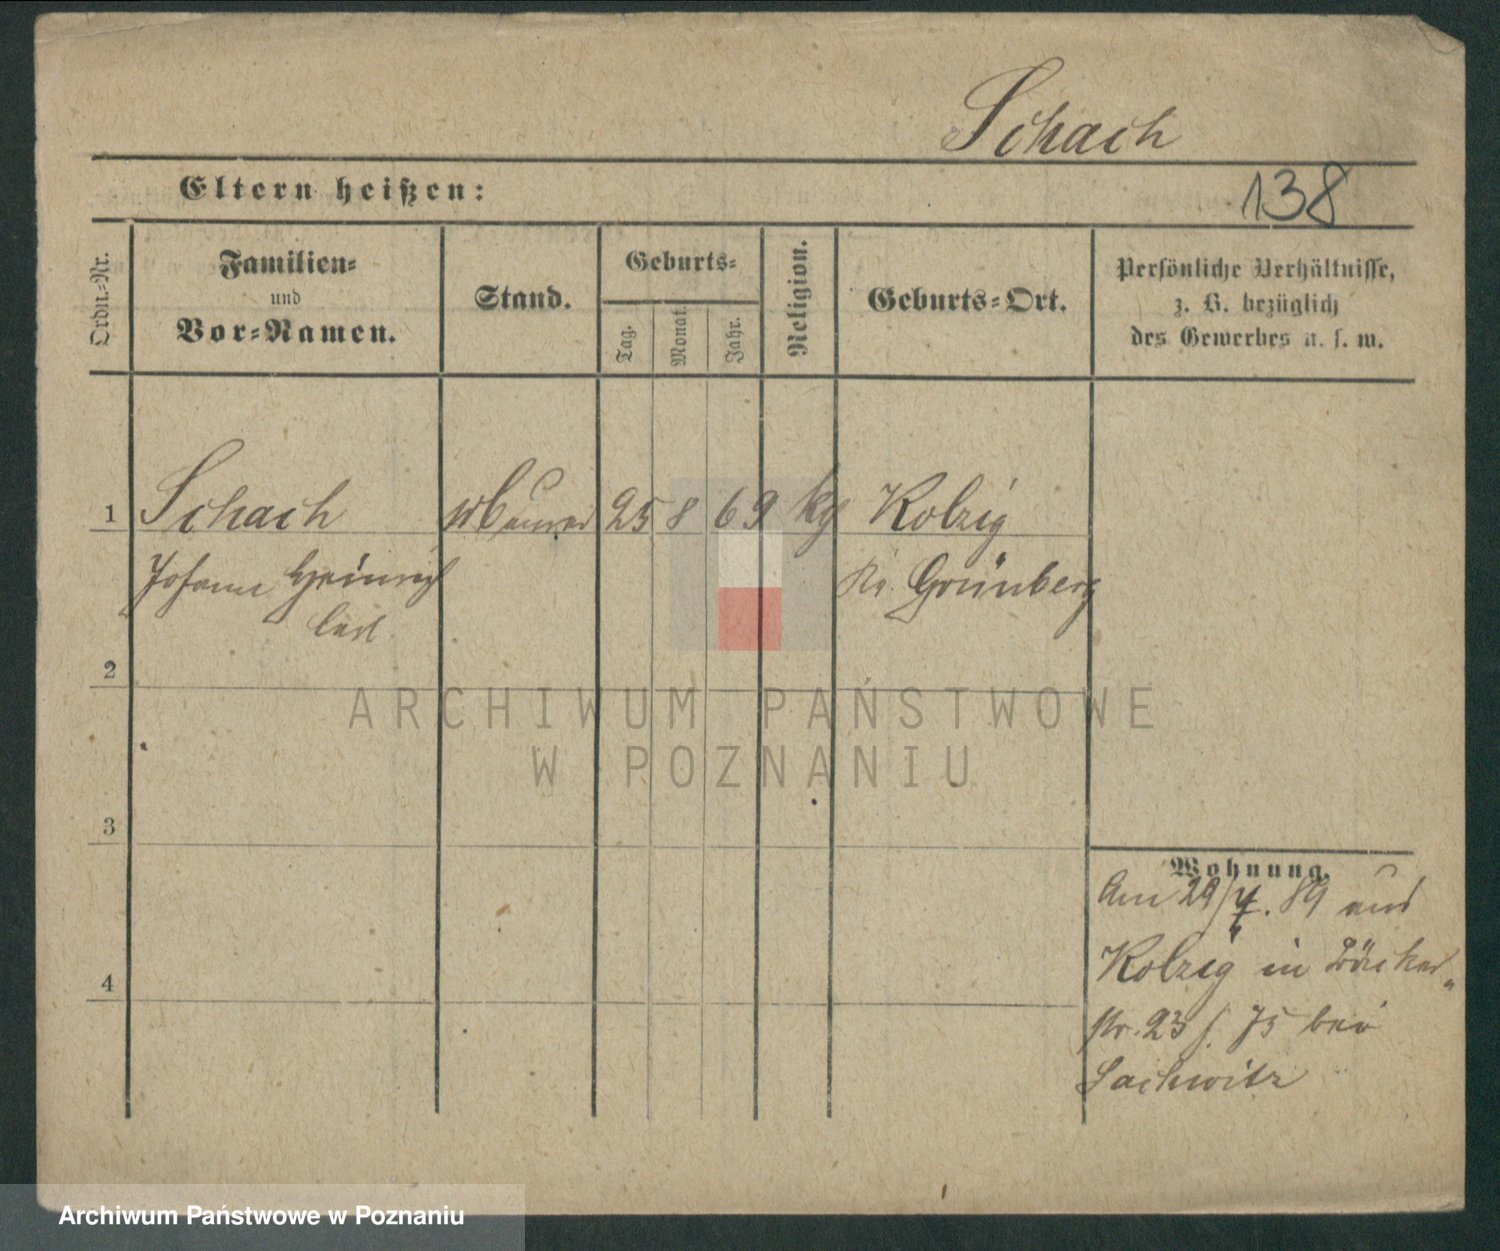 Schach
138
Eltern heißen:
Ordn.-Nr.
Familien-
und
Vor-Namen.
Stand.
Geburts-
Tag.
Monat.
Jahr.
Religion.
Geburts-Ort.
Persönliche Verhältnisse,
z. B. bezüglich
des Gewerbes u. s. w.
1 Schach 25 8 69 Kolzig
Johann Heinrich Kr. Grünberg
2
3
4
Wohnung.
Am 29/4. 89 aus
Kolzig in Bäcker-
str. 23 75 bei
Sachwitz
ARCHIWUM PAŃSTWOWE
W POZNANIU
Archiwum Państwowe w Poznaniu